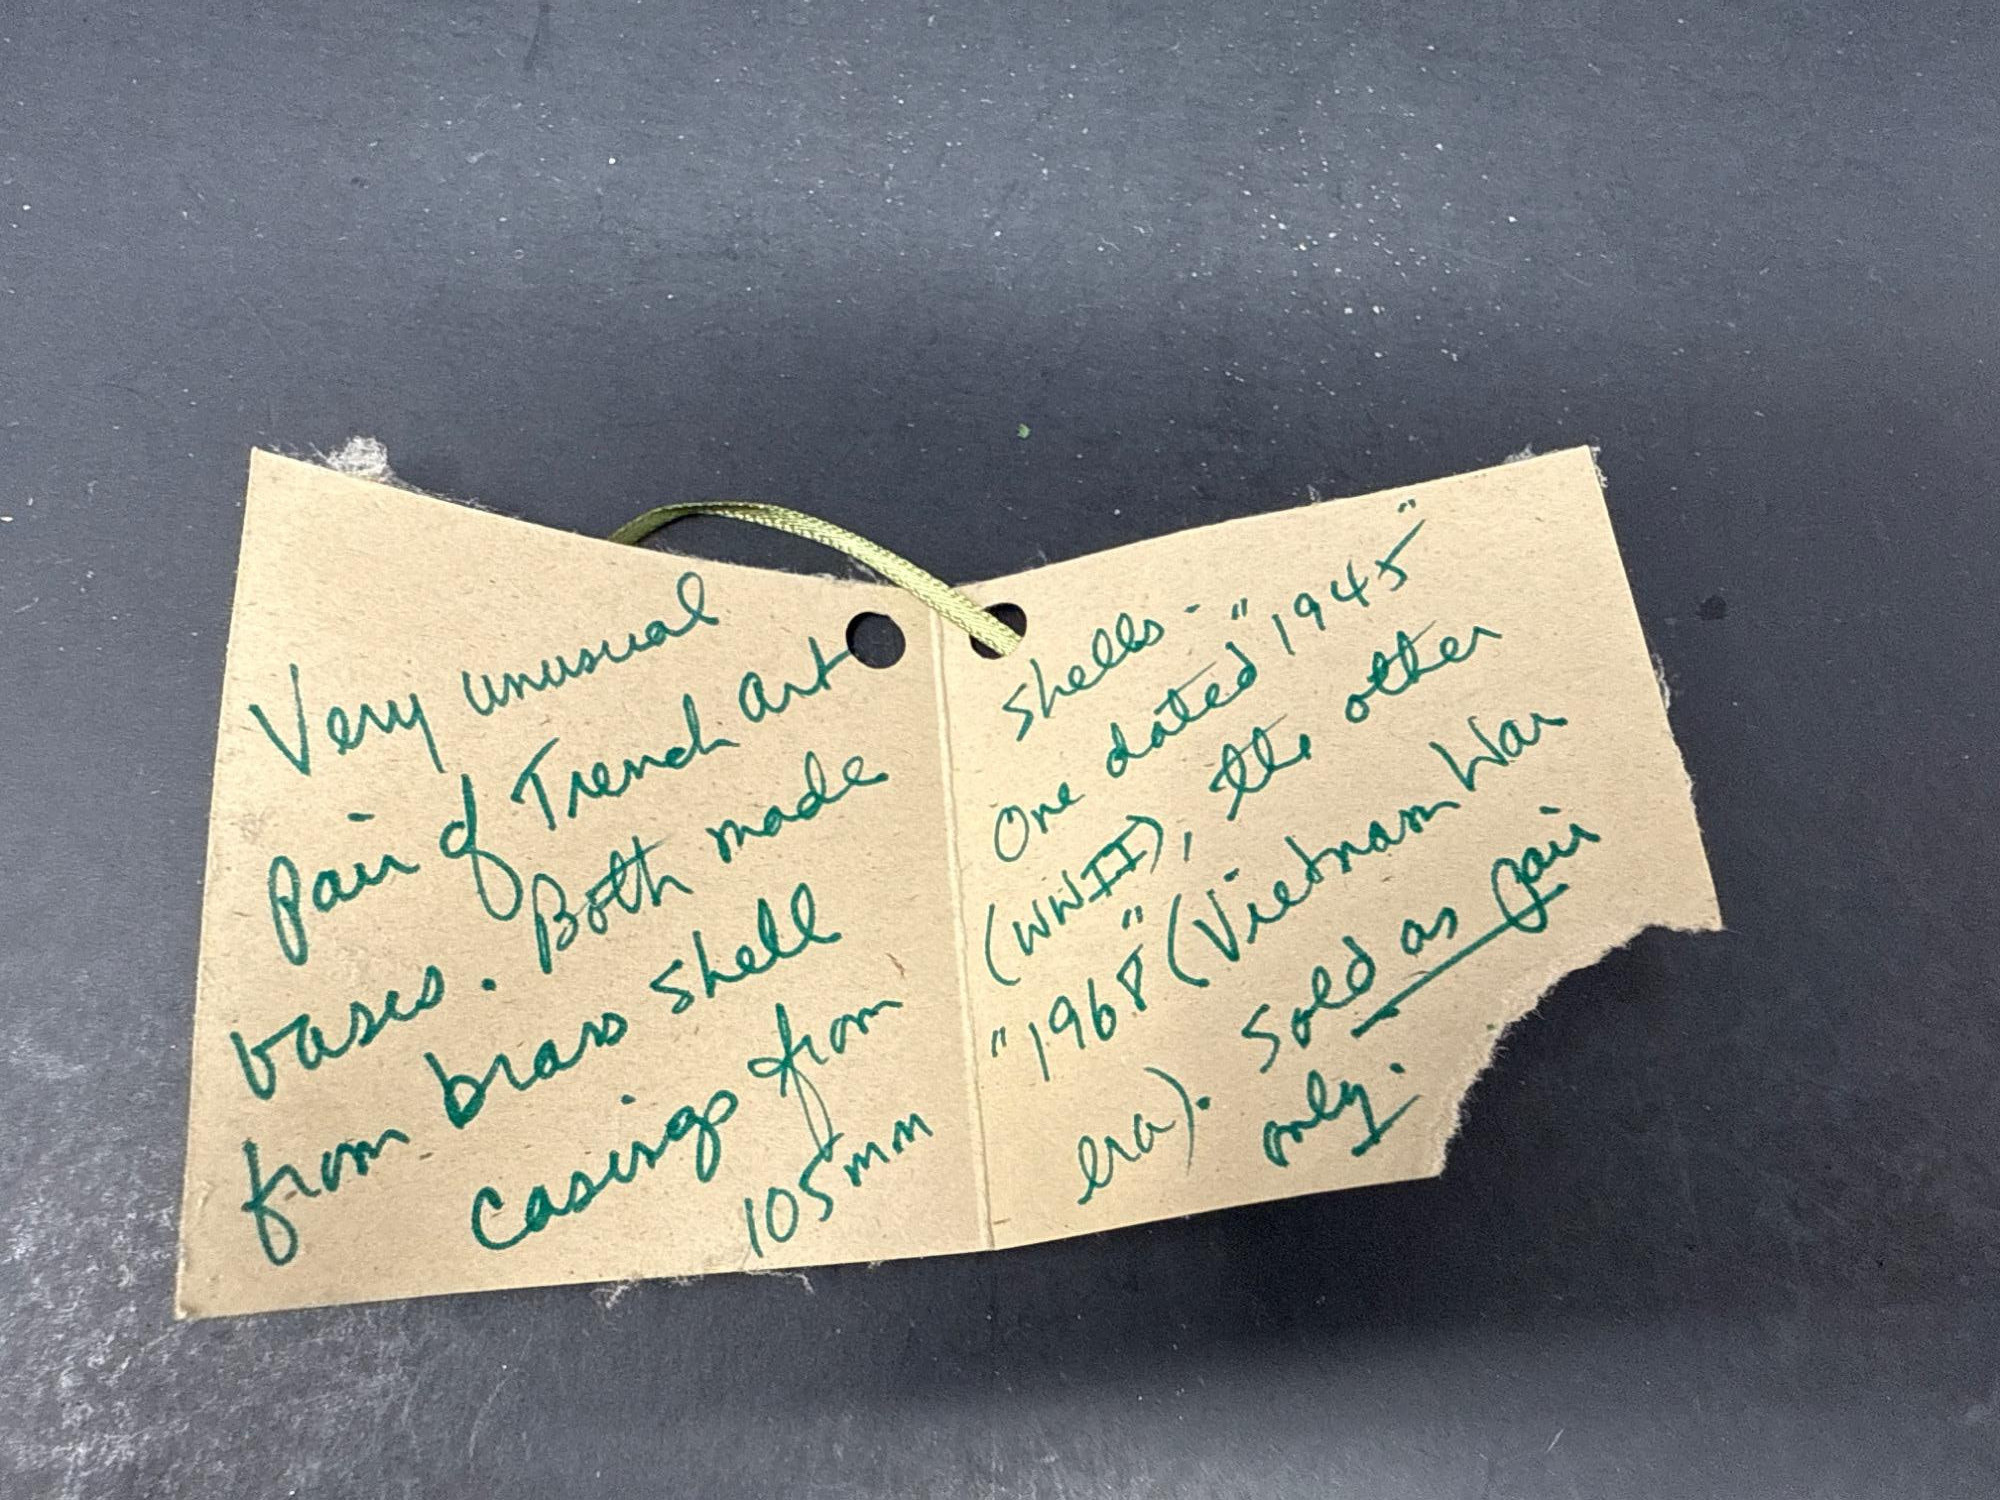 Very unusual
pair of Trench art
vases. Both made
from brass shell
casings from
105mm
shells -
One dated "1945"
(WWII), the other
"1968" (Vietnam War
era). Sold as pair
only.